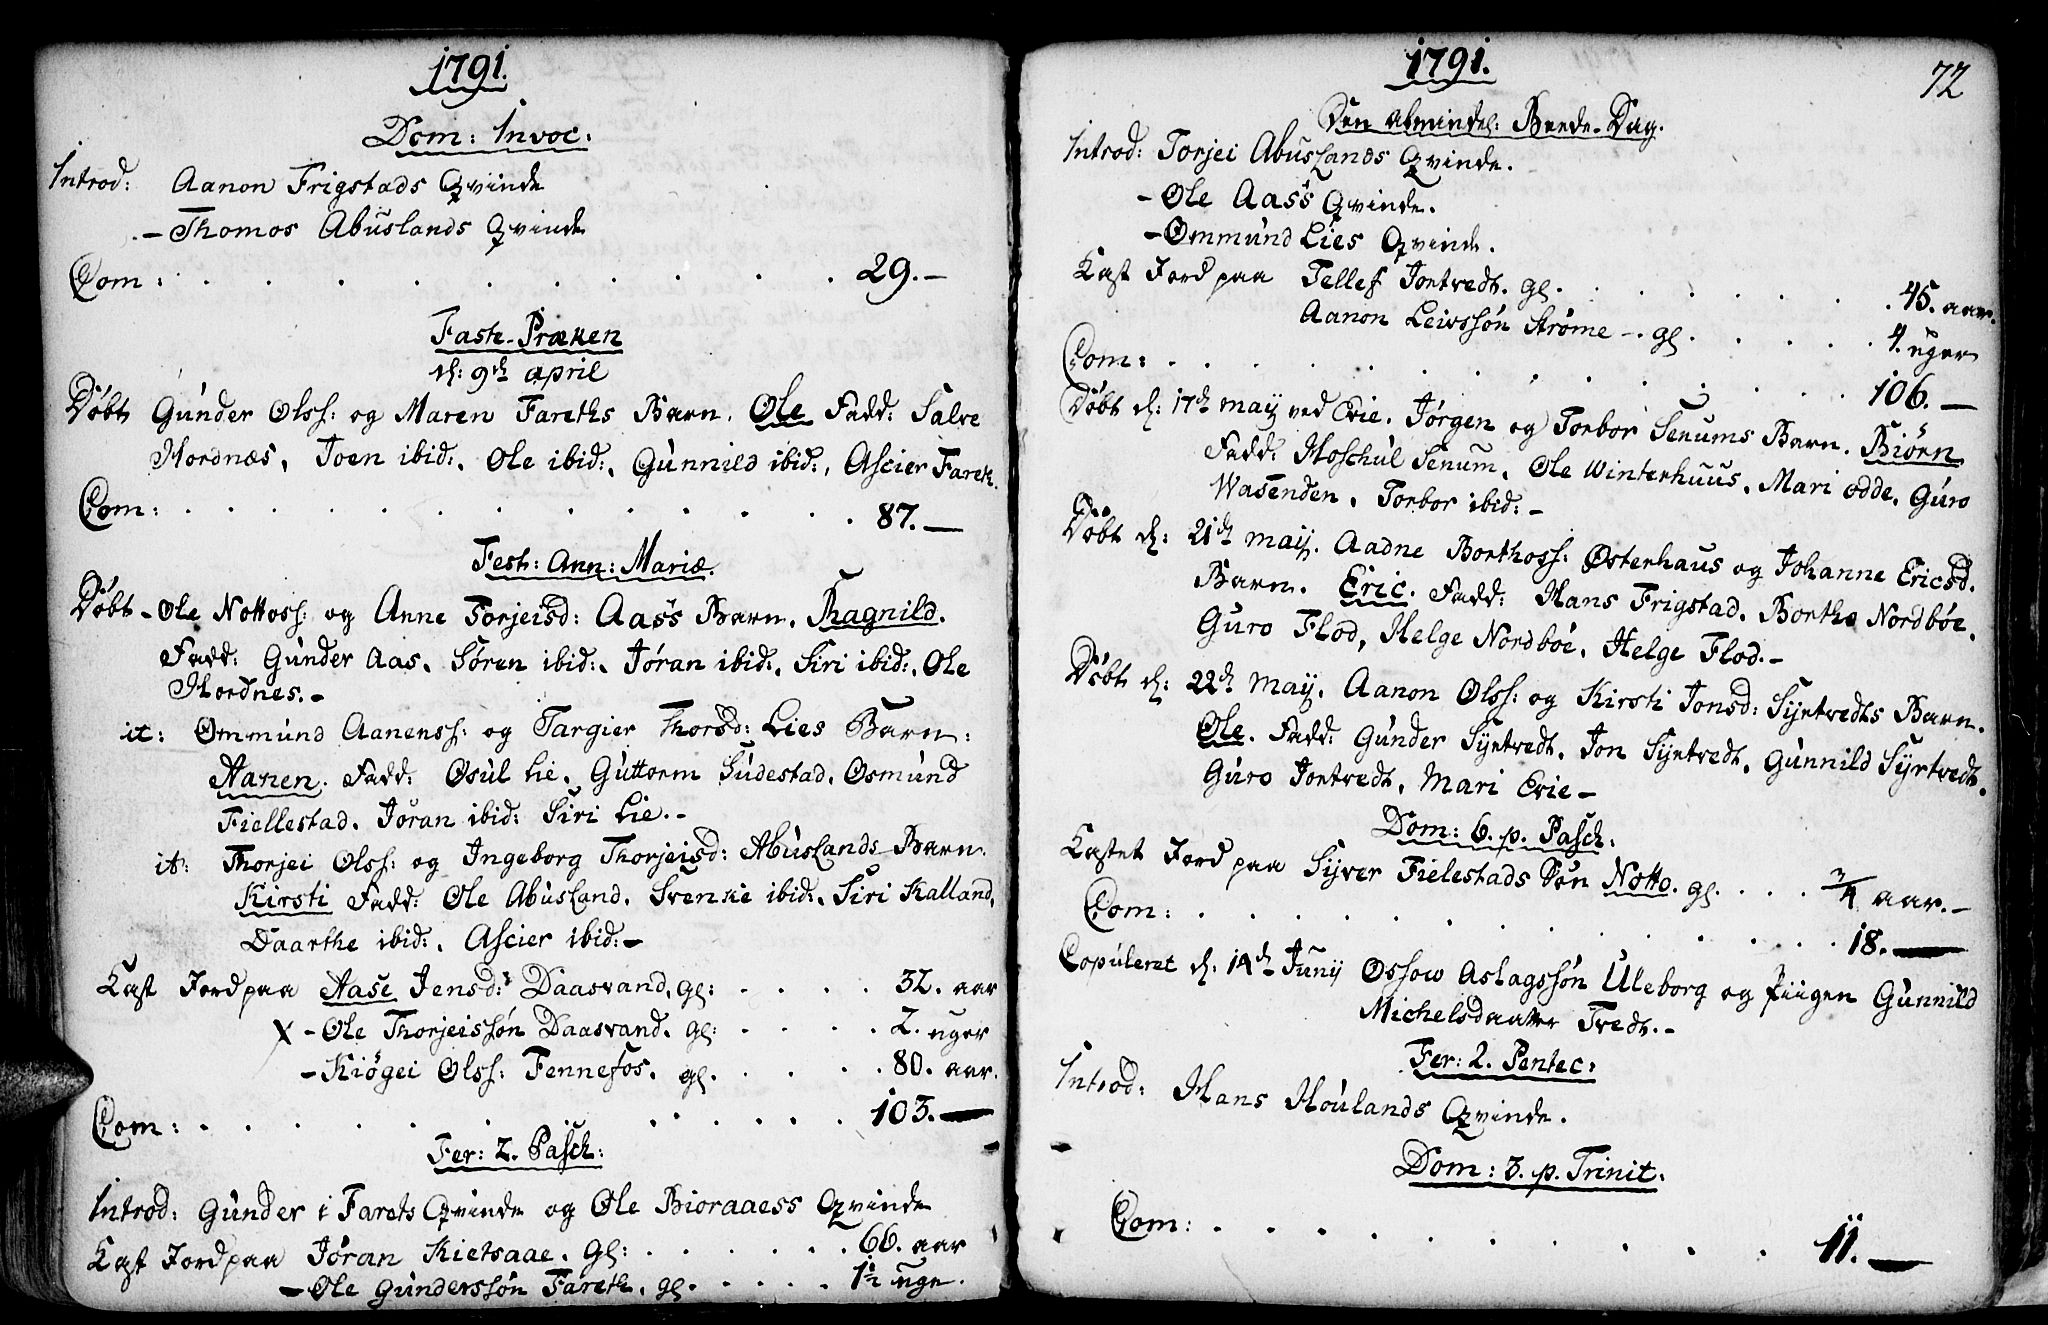 1791.
Dom: Invoc:
Introd: Aanon Frigstads Qvinde
- Thomos Abuslands Qvinde
Com: . . . . . . . . . 29. -
Faste-Præken
d: 9de april
Döbt Gunder Olss: og Maren Fareths Barn. Ole Fadd: Salve
Hordnæs, Joen ibid:, Ole ibid:, Gunnild ibid:, Ascier Fareth.
Com: . . . . . . . . . 87. -
Fest: Ann: Mariæ.
Döbt - Ole Nottoss: og Anne Torjeisd: Aass Barn. Ragnild.
Fadd: Gunder Aas, Sören ibid:, Jöran ibid:, Siri ibid:, Ole
Hordnes. -
it: Ommund Aanenss: og Targier Thorsd: Lies Barn:
Aanen. Fadd: Osul Lie, Guttorm Sudestad, Osmund
Fiellestad, Jöran ibid: Siri Lie. -
it: Thorjei Olss: og Ingeborg Thorjeisd: Abuslands Barn.
Kirsti Fadd: Ole Abusland, Svenke ibid:, Siri Kalland,
Daarthe ibid:, Ascier ibid: -
Kast Jord paa Aase Jensd: Daasvand, gl: . . . . 32. aar
X - Ole Thorjeissön Daasvand. gl: . . . . 2. uger
- Kiögei Olss: Fennefos. gl. . . . . 80. aar.
Com: . . . . . . . . . 103. -
Fer: 2. Pasch:
Introd: Gunder i Farets Qvinde og Ole Bioraaess Qvinde
Kast Jord paa Jöran Kietsaae. gl: . . . . . 66. aar
- Ole Gunderssön Fareth. gl. . . . . 1½ uge.
1791.
72
Den Almindel: Beede-Dag.
Introd: Torjei Abuslands Qvinde.
- Ole Aass Qvinde.
- Ommund Lies Qvinde.
Kast Jord paa Tellef Jortvedt. gl. . . . . . 45. aar.
Aanon Leivssön Ströme -. gl. . . . . . 4. uger
Com: . . . . . . . . . 106. -
Döbt d: 17de maij ved Evie. Jörgen og Torbor Senums Barn. Biörn
Fadd: Hoschul Senum, Ole Winterhuus, Mari odde, Guro
Wasenden, Torbor ibid: -
Döbt d: 21de maij. Aadne Borthoss: Østerhaus og Johanne Ericsd.
Barn. Eric. Fadd: Hans Frigstad, Bortho Nordböe,
Guro Flod, Helge Nordböe, Helge Flod. -
Döbt d: 22de maij. Aanon Olss: og Kirsti Jonsd: Syrtvedts Barn.
Ole. Fadd: Gunder Syrtvedt, Jon Syrtvedt, Gunnild Syrtvedt,
Guro Jortvedt, Mari Evie -
Dom: 6. p. Pasch:
Kastet Jord paa Syver Fielestads Sön Notto. gl. . . . 3/4 aar. -
Com: . . . . . . . . . 18. -
Copuleret d: 14de Junij Ossow Aslagssön Uleborg og Piigen Gunnild
Michelsdaatter Tvedt. -
Fer: 2. Pentec:
Introd: Hans Houlands Qvinde.
Dom: 3. p. Trinit:
Com: . . . . . . . . . 11. -